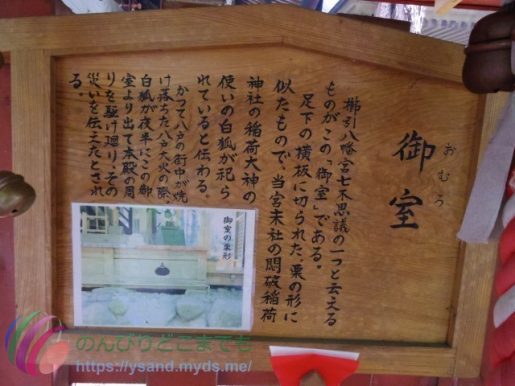 御室
おむろ
櫛引八幡宮七不思議の一つと云える
ものがこの「御室」である。
足下の横板に切られた、栗の形に
似たもので、当宮末社の開破稲荷
神社の稲荷大神の
使いの白狐が祀ら
れていると伝わる。
かつて八戸の街中が焼
け落ちた八戸大火の際、
白狐が夜半にこの御
室より出て本殿の周
りを駆け廻り、その
災いを伝えたとされ
る。
御室の栗形
のんびりどこまでも
https://ysand.myds.me/